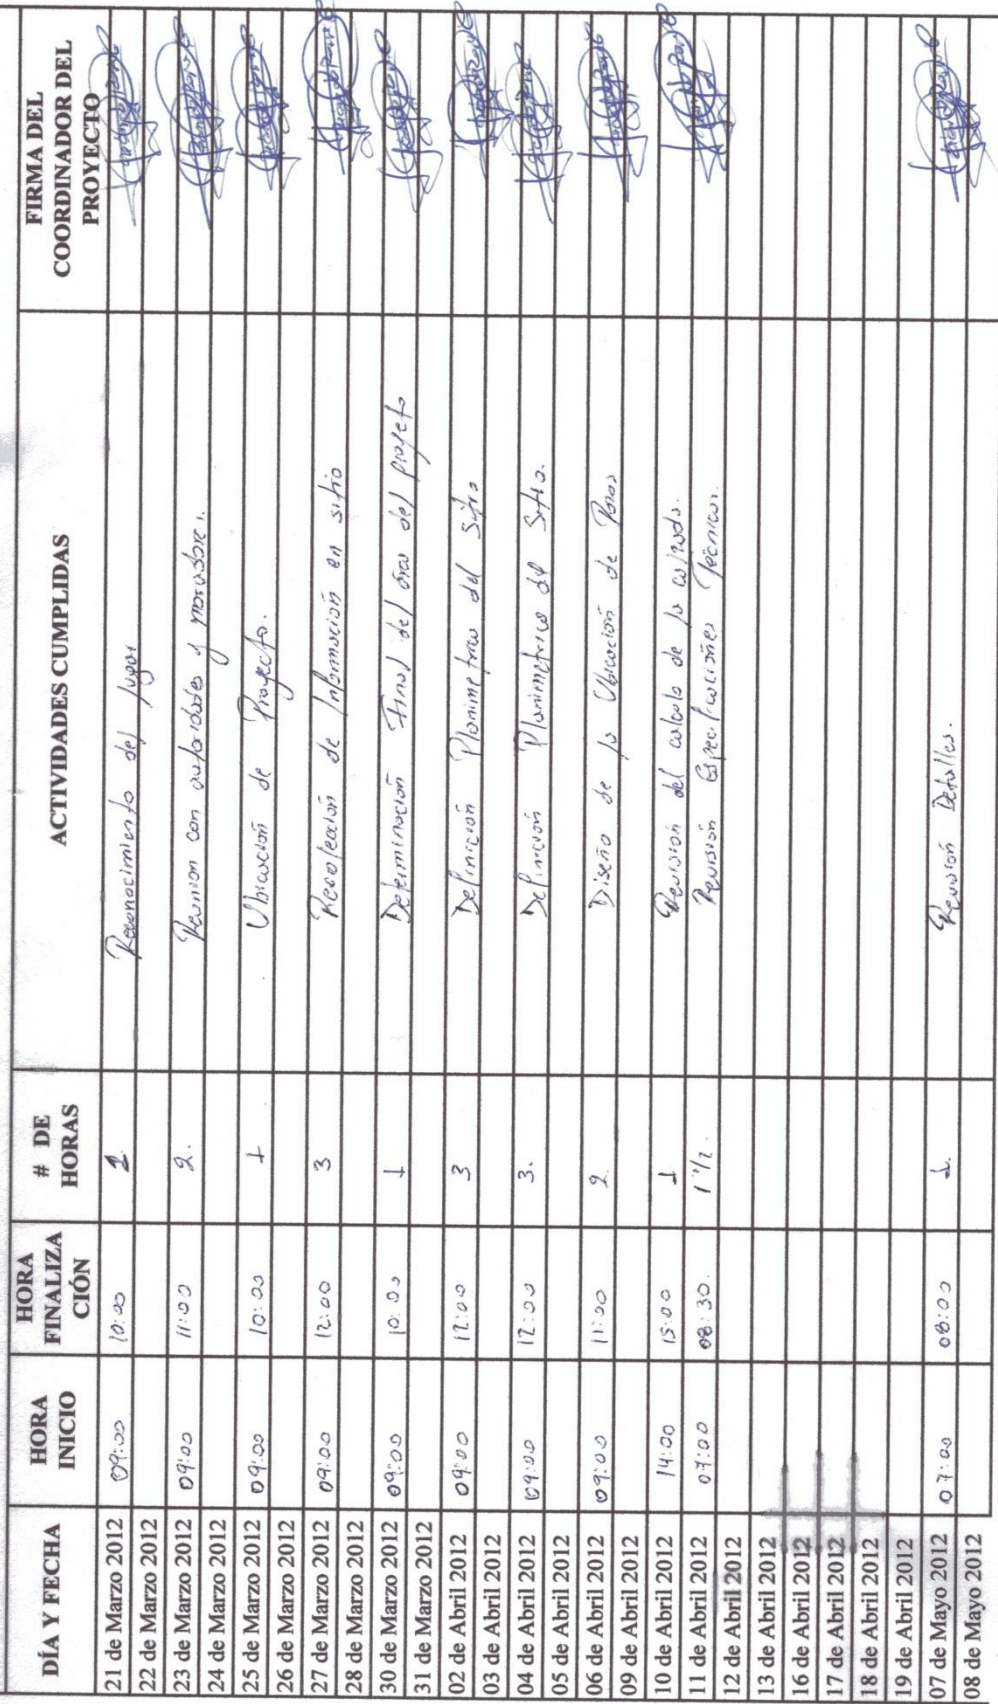 DÍA Y FECHA HORA INICIO HORA FINALIZA CIÓN # DE HORAS ACTIVIDADES CUMPLIDAS FIRMA DEL COORDINADOR DEL PROYECTO
21 de Marzo 2012 09:00 10:00 1 Reconocimiento del lugar
22 de Marzo 2012
23 de Marzo 2012 09:00 11:00 2. Reunion con autoridades y moradores.
24 de Marzo 2012
25 de Marzo 2012 09:00 10:00 1 Ubicación de Proyecto.
26 de Marzo 2012
27 de Marzo 2012 09:00 12:00 3 Recolección de Información en sitio
28 de Marzo 2012
30 de Marzo 2012 09:00 10:00 1 Determinación Final del área del proyecto
31 de Marzo 2012
02 de Abril 2012 09:00 12:00 3 Definición Planimetrica del Sitio
03 de Abril 2012
04 de Abril 2012 09:00 12:00 3. Definición Planimetrica del Sitio.
05 de Abril 2012
06 de Abril 2012 09:00 11:00 2 Diseño de la Ubicación de
09 de Abril 2012
10 de Abril 2012 14:00 15:00 1 Revisión del calculo de la calzada.
11 de Abril 2012 07:00 08:30. 1 1/2. Revisión Especificaciones Técnicas.
12 de Abril 2012
13 de Abril 2012
16 de Abril 2012
17 de Abril 2012
18 de Abril 2012
19 de Abril 2012
07 de Mayo 2012 07:00 08:00 1. Revisión Detalles.
08 de Mayo 2012